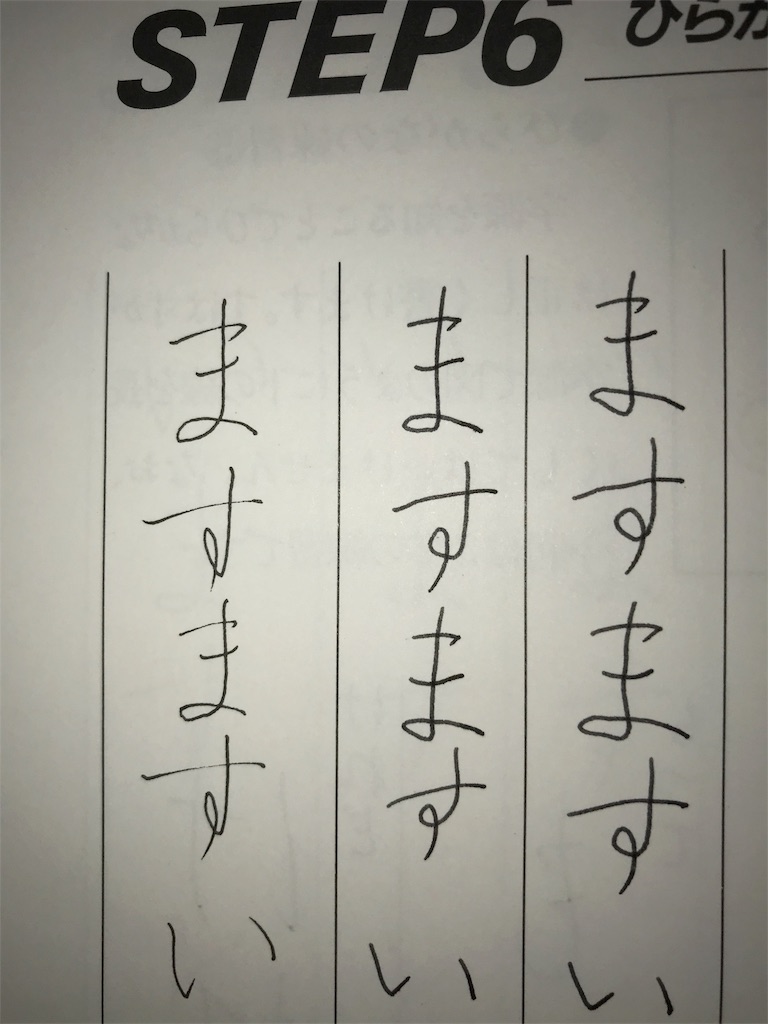 STEP6
ひらが
ますますい
ますますい
ますますい